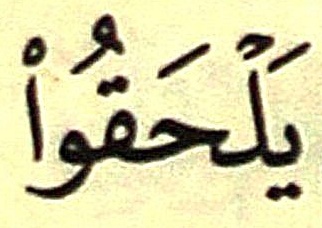 يَلْحَقُوا۟